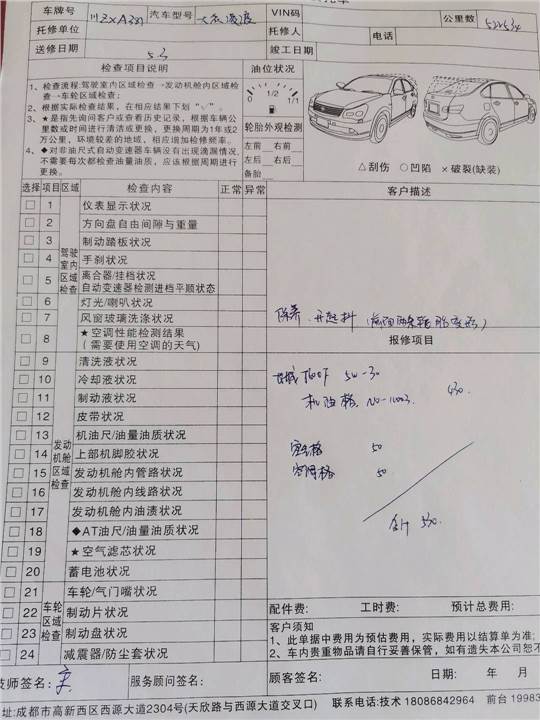 车牌号 汽车型号 大众凌渡 VIN码 公里数
托修单位 托修人 电话
送修日期 5.3 竣工日期
检查项目说明 油位状况
1、检查流程:驾驶室内区域检查→发动机舱内区域检
查→车轮区域检查;
2、根据实际检查结果,在相应结果下划“√”。
3、★是指先询问客户或查看历史记录,根据车辆公
里数或时间进行清洁或更换,更换周期为1年或2
万公里,环境较差的地域,相应增加检修频率。
4、◆对非油尺式自动变速器车辆没有出现滴漏情况,
不需要每次都检查油量油质,应该根据周期进行
更换。
0 1/2 1/1
轮胎外观检测
左前 右前
左后 右后
备胎
△刮伤 ○凹陷 ×破裂(缺装)
选择 项目 区域 检查内容 正常 异常 客户描述
驾驶室内区域检查
1 仪表显示状况
2 方向盘自由间隙与重量
3 制动踏板状况
4 手刹状况
5 离合器/挂档状况
自动变速器检测进档平顺状态
6 灯光/喇叭状况
7 风窗玻璃洗涤状况
8 ★空调性能检测结果
(需要使用空调的天气)
保养
报修项目
发动机舱区域检查
9 清洗液状况
10 冷却液状况
11 制动液状况
12 皮带状况
13 机油尺/油量油质状况
14 上部机脚胶状况
15 发动机舱内管路状况
16 发动机舱内线路状况
17 发动机舱内油渍状况
18 ◆AT油尺/油量油质状况
19 ★空气滤芯状况
20 蓄电池状况
长城 5W-30
机油格
空气格 50
空调格 50
合计 530
车轮区域检查
21 车轮/气门嘴状况
22 制动片状况
23 制动盘状况
24 减震器/防尘套状况
配件费: 工时费: 预计总费用:
客户须知
1、此单据中费用为预估费用,实际费用以结算单为准;
2、车内贵重物品请自行妥善保管,如有遗失本公司恕不
技师签名: 服务顾问签名: 顾客签名: 日期: 年 月
址:成都市高新西区西源大道2304号(天欣路与西源大道交叉口) 联系电话:技术 18086842964 前台 19983